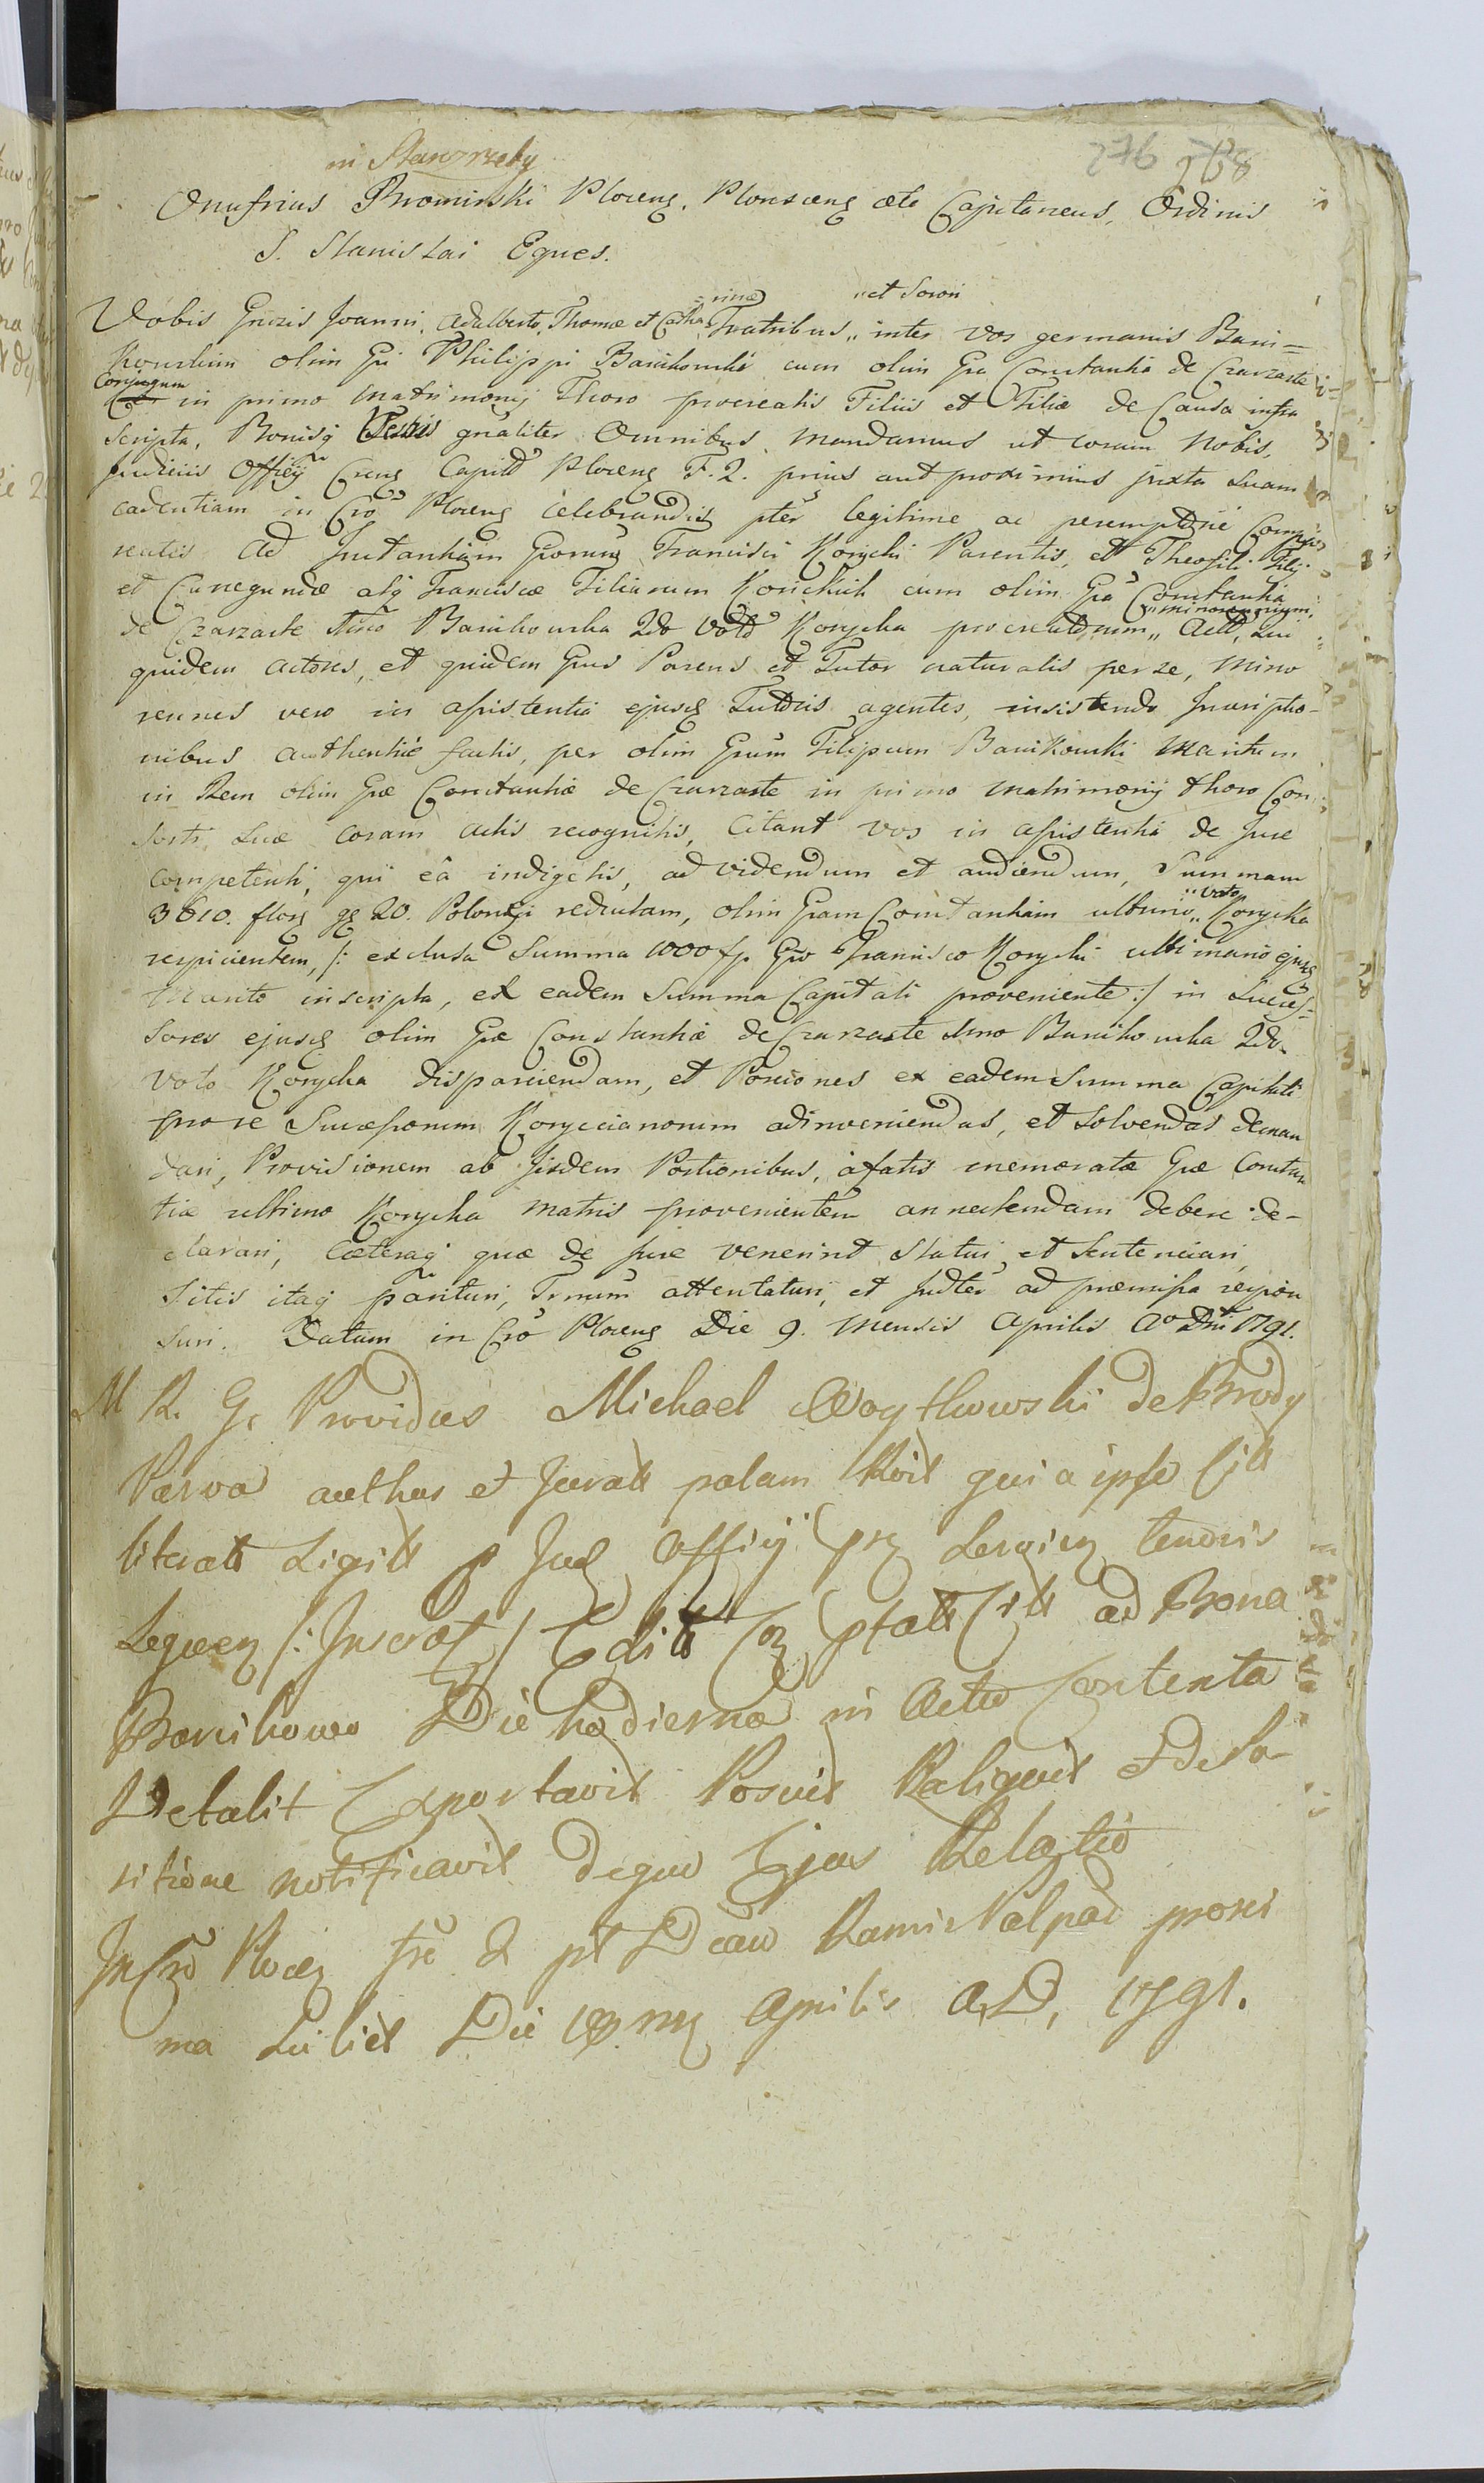 276 268
in Stawrzeby
Onufrius Bromirski Ploceng. Plonsceng &tc Capitaneus, Ordinis
S. Stanislai Eques.
Vobis Gnrzis Joanni, Adalberto, Thomæ et Catharinæ Fratribus „et Sorori„ inter vos germanis Bani=
kowskim olim Gi Philippi Banikowski cum olim Gra Constantia de Czarzaste
Conjugum in primo Matrimonij Thoro procreatis Filiis et Filiæ de Causa infra
scripta, Bonisq Vestris gnaliter Omnibus mandamus ut coram Nobis,
Judiciis Officij Creng Capitt Ploceng F. 2. prius aut proximius juxta suam
cadentiam in Cro Ploceng celebrandis pter legitime ac peremptorie Compa
reatis Ad Instantiam Grorum Francisci Korycki Parentis, et Theofili Filij
et Cunegundæ atq Franciscæ Filiarum Korickich cum olim Gra Constantia
de Czarzaste 1mo Banikowska 2do Voto Korycka procreatorum „minorennium„ Actt, Qui
quidem actores, et quidem Grus Parens et Tutor naturalis per se, mino
rennes vero in assistentia ejusq Tutoris agentes, insistendo Inscriptio-
nibus authentice factis, per olim Grum Filipum Banikowski Maritum
in Rem olim Græ Constantiæ de Czarzaste in primo matrimonij thoro Con
sorti suæ coram actis recognitis, Citant vos in assistentia de Jure
competenti, qui eâ indigetis, ad videndum et audiendum, Summam
3610. flor gg 20. Polongi reductam, olim Gram Constantiam ultimo „voto„ Korycka
respicientem, /: exclusa Summa 1000 fp. Gro Francisco Korycki ultimario ejusq
Marito inscripta, ex eadem Summa Capitali proveniente :/ in Succes=
sores ejusq olim Græ Constantiæ de Czarzaste 1mo Banikowska 2do
voto Korycka disparciendam, et Porciones ex eadem Summa Capitali
pro re Successorum Koryccianorum adinveniendas, et solvendas deman
dari, Provisionem ab jisdem Portionibus, a fatis memoratæ Græ Constan
tiæ ultimo Korycka Matris provenientem annectendam debere de-
clarari, Cæteraq quæ de jure venerint Statui et Sentenciari,
Sitis itaq parituri, Trnum attentaturi, et Judter ad præmissa respon
suri. Datum in Cro Ploceng Die 9. Mensis Aprilis Ao Dni 1791.
M R. G. Providus Michael Woythowski de Brody
Parva authus et Juratt palam Rvit quia ipse Citt
literatt Ligitt p Jud Officij
Legwen /: Inscrat / Editt Citt ad Bona
Banikowo Die hodierna in Actu Contenta
Detulit Exportavit Posuit Reliquit et de Po-
sitione notificavit de quo Ejus Relatio
In Cro Plocen fr 2 pt Dcam Ramis Palpar proxi
ma Scilicet Die 18 mg Aprilis A, D, 1791.